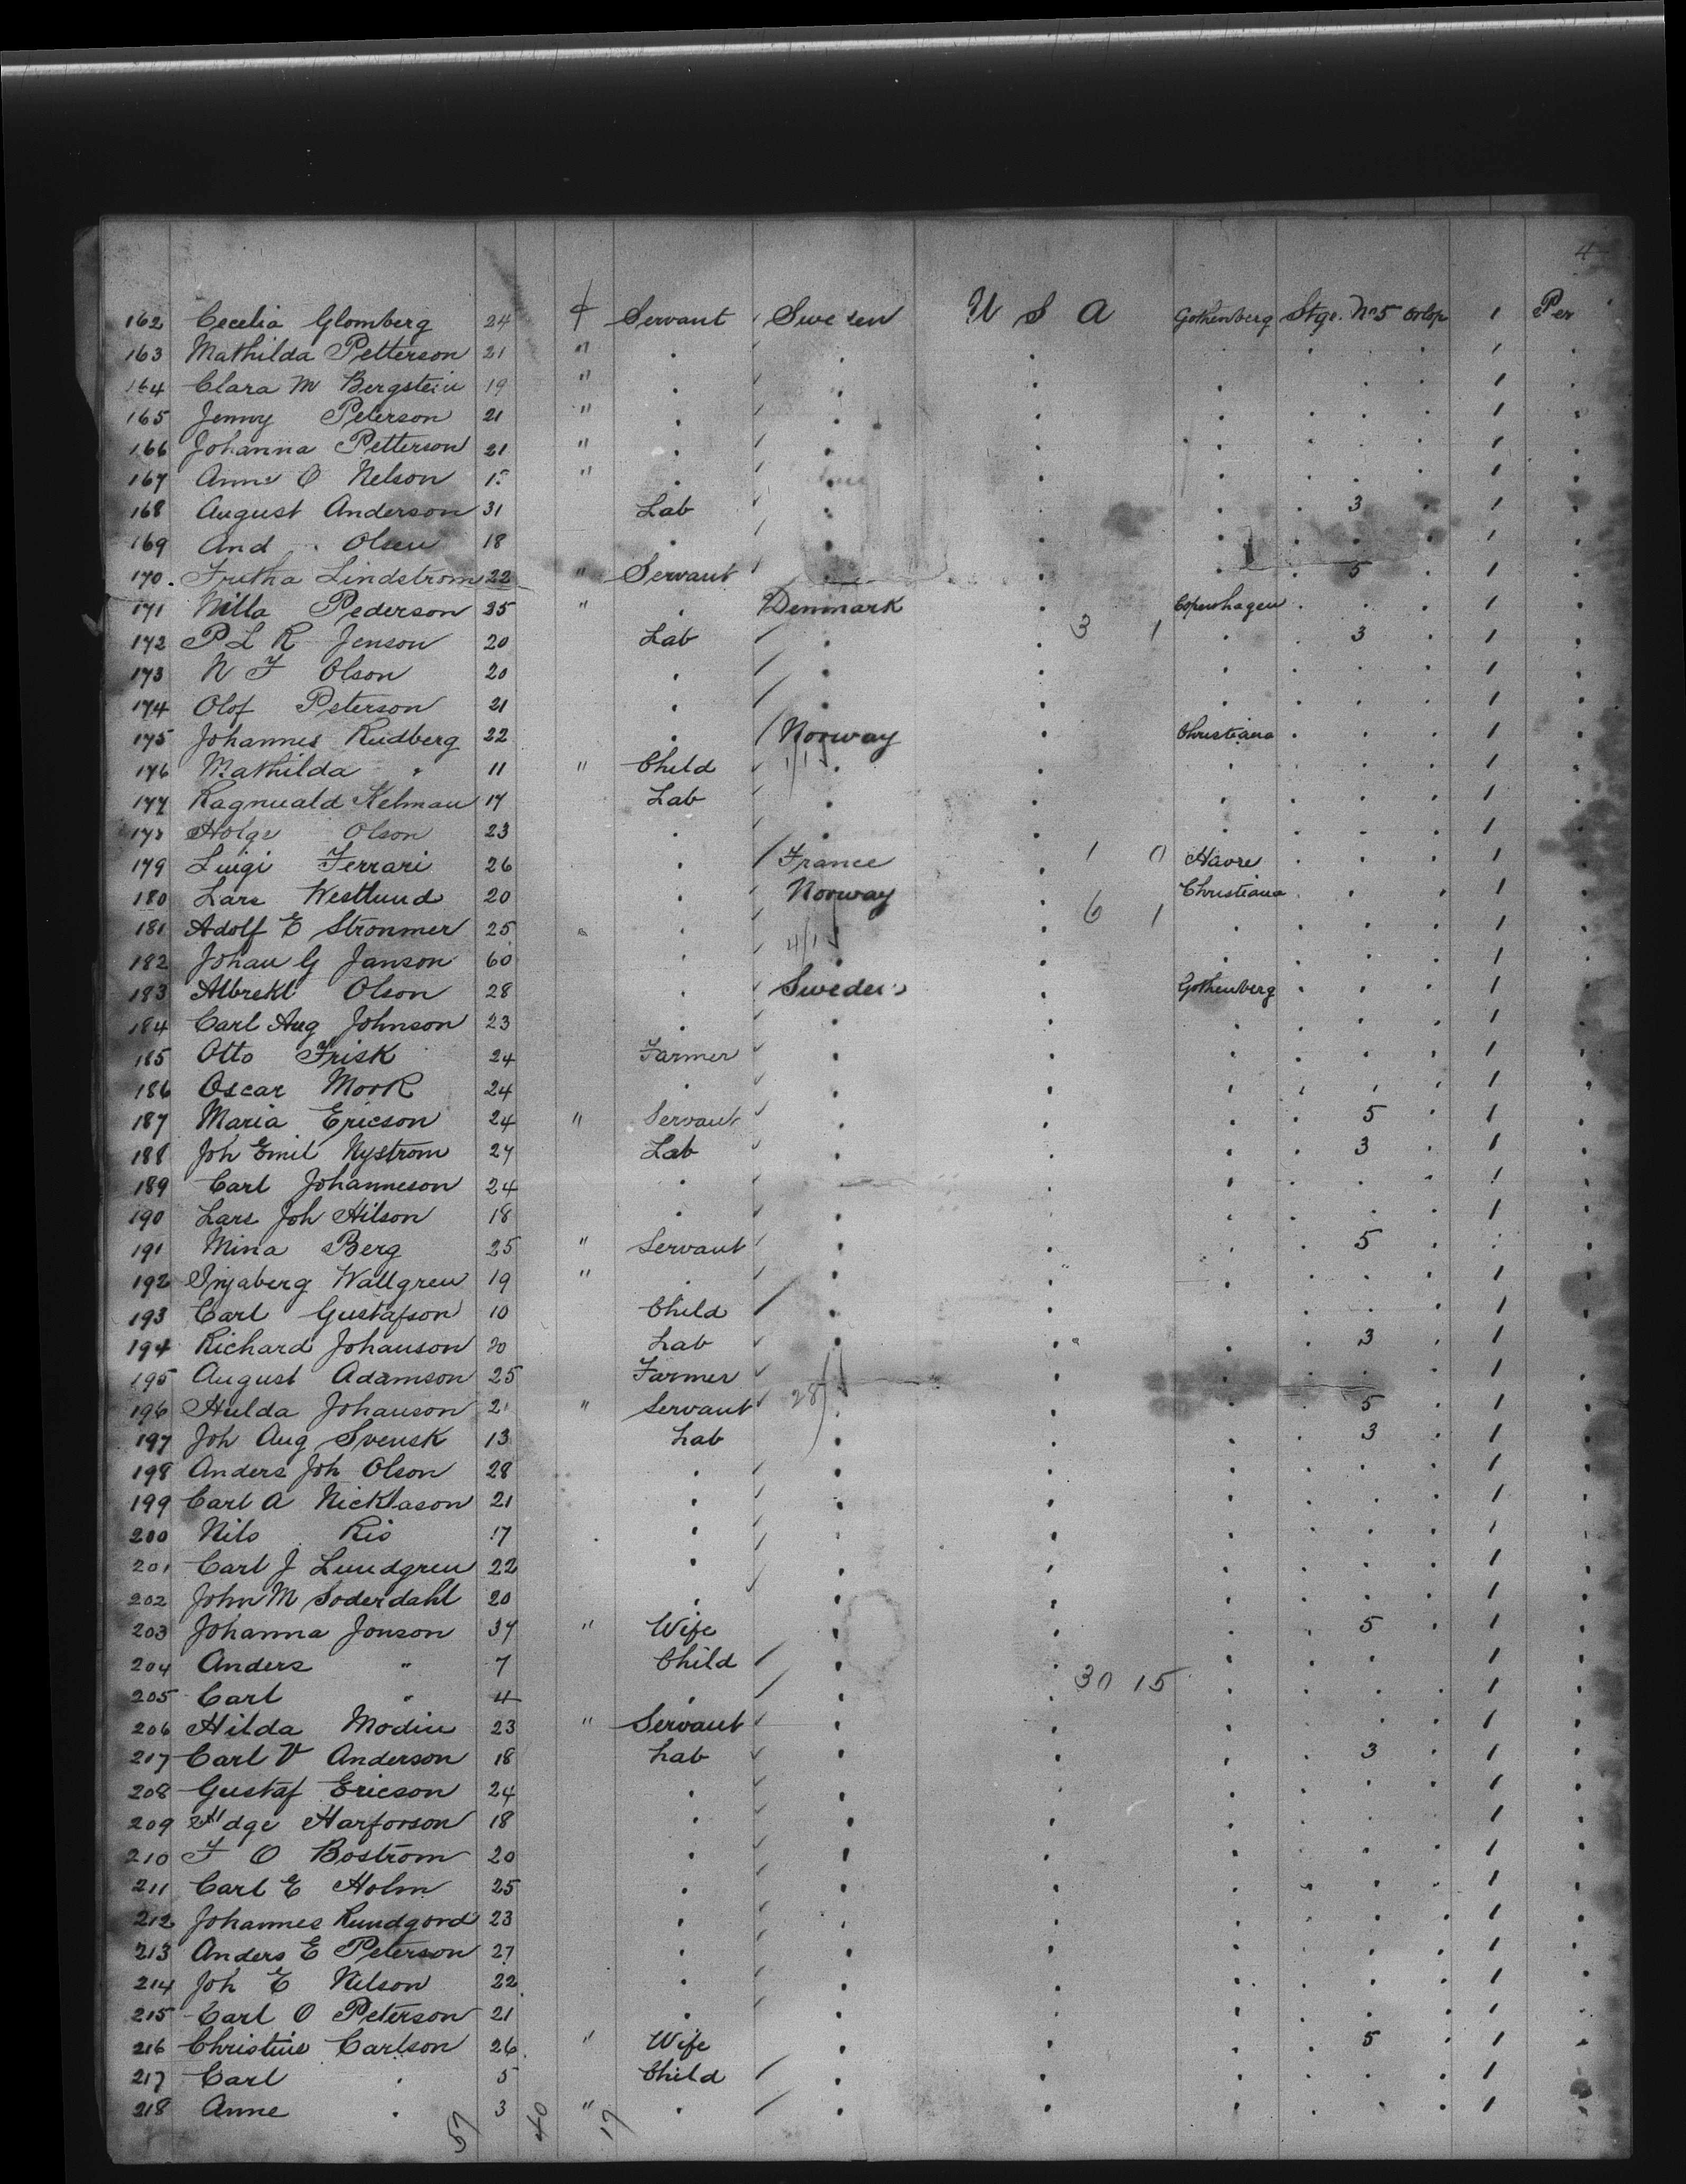 4
162 Cecelia Glomberg 24 f Servant Sweden U S A Gothenberg Stge. No 5 Orlop 1 Per
163 Mathilda Petterson 21 " . . . . . . . 1 .
164 Clara M Bergstein 19 " . . . . . . 1 .
165 Jenny Peterson 21 " . . . . . . . 1 .
166 Johanna Petterson 21 " . . . . . . . 1 .
167 Anna O Nelson " . . . . . . . 1 .
168 August Anderson 31 Lab . . . . 3 . 1 .
169 And . Olsen 18 . . . . . . . 1 .
170. Lindstrom 22 " Servant . . . . 5 . 1 .
171 Nilla Pederson 35 " . Denmark . Copenhagen . . . 1 .
172 P L R Jenson 20 Lab . . 3 1 . . 3 . 1 .
173 N F Olson 20 . . . . . . . 1 .
174 Olof Peterson 21 . . . . . . . 1 .
175 Johannes Rudberg 22 . Norway . Christiana . . . 1 .
176 Mathilda " 11 " Child 1/1 . . . . . . 1 .
177 Ragnuald Kelman 17 Lab . . . . . . 1 .
178 Holge Olson 23 . . . . . . . 1 .
179 Luigi Ferrari 26 . France . 1 0 Havre . . . 1 .
180 Lars Westlund 20 . Norway . 6 1 Christiana . . . 1 .
181 Adolf E Stronmer 25 . 4/1 . . . . . 1 .
182 Johan G Janson 60 . . . . . . . 1 .
183 Albrekt Olson 28 . Sweden . Gothenberg . . . 1 .
184 Carl Aug Johnson 23 . . . . . . . 1 .
185 Otto Frisk 24 Farmer . . . . . . 1 .
186 Oscar Mork 24 . . . . . . . 1 .
187 Maria Ericson 24 " Servant . . . . 5 . 1 .
188 Joh Emil Nystrom 27 Lab . . . . 3 . 1 .
189 Carl Johanneson 24 . . . . . . . 1 .
190 Lars Joh Hilson 18 . . . . . . . 1 .
191 Mina Berg 25 " Servant . . . . 5 . .
192 Injaberg Wallgren 19 " . . . . . . . 1 .
193 Carl Gustafson 10 Child . . . . . 1 .
194 Richard Johanson 20 Lab . . . . 3 . 1 .
195 August Adamson 25 Farmer . . . . . 1 .
196 Hulda Johanson " Servant 28 . . . . 5 . 1 .
197 Joh Aug Svensk 13 Lab . . . . 3 . 1 .
198 Anders Joh Olson 28 . . . . . . . 1 .
199 Carl A Nicklason 21 . . . . . . . 1 .
200 Nils Ris 17 . . . . . . . 1 .
201 Carl J Lundgren 22 . . . . . . . 1 .
202 John M Soderdahl 20 . . . . . . . 1 .
203 Johanna Jonson 37 " Wife . . . . 5 . 1 .
204 Anders " 7 Child . . . . . 1 .
205 Carl " 4 . . . 30 15 . . . . 1 .
206 Hilda Modin 23 " Servant . . . . . . 1 .
217 Carl V Anderson 18 Lab . . . . 3 . 1 .
208 Gustaf Ericson 24 . . . . . . . 1 .
209 Harforson 18 . . . . . . . 1 .
210 F O Bostrom 20 . . . . . . . 1 .
211 Carl E Holm 25 . . . . . . . 1 .
212 Johannes Rundgord 23 . . . . . . . 1 .
213 Anders E Peterson 27 . . . . . . . 1 .
214 Joh E Nelson 22 . . . . . . . 1 .
215 Carl O Peterson 21 . . . . . . . 1 .
216 Christine Carlson 26 " Wife . . . . 5 . 1 .
217 Carl . 5 Child . . . . . . 1 .
218 Anne . 3 " . . . . . . . 1 .
57 40 17